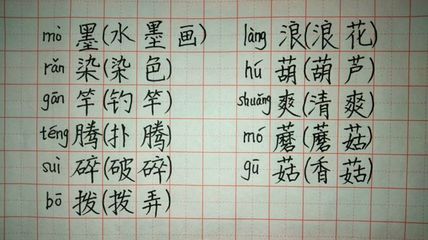 mò 墨(水墨画)
rǎn 染(染色)
gān 竿(钓竿)
téng 腾(扑腾)
suì 碎(破碎)
bō 拨(拨弄)
làng 浪(浪花)
hú 葫(葫芦)
shuǎng 爽(清爽)
mó 蘑(蘑菇)
gū 菇(香菇)